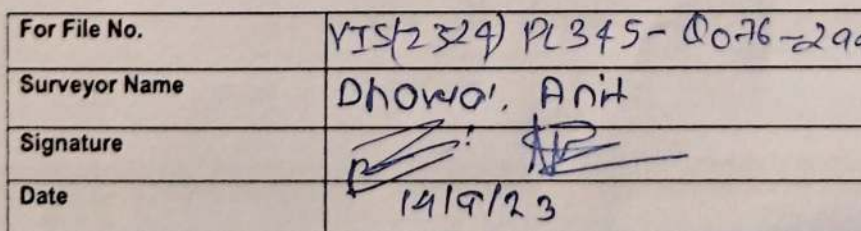 For File No. VIS(2324) PL345-Q076-
Surveyor Name Dhawal, Anit
Signature
Date 14/9/23